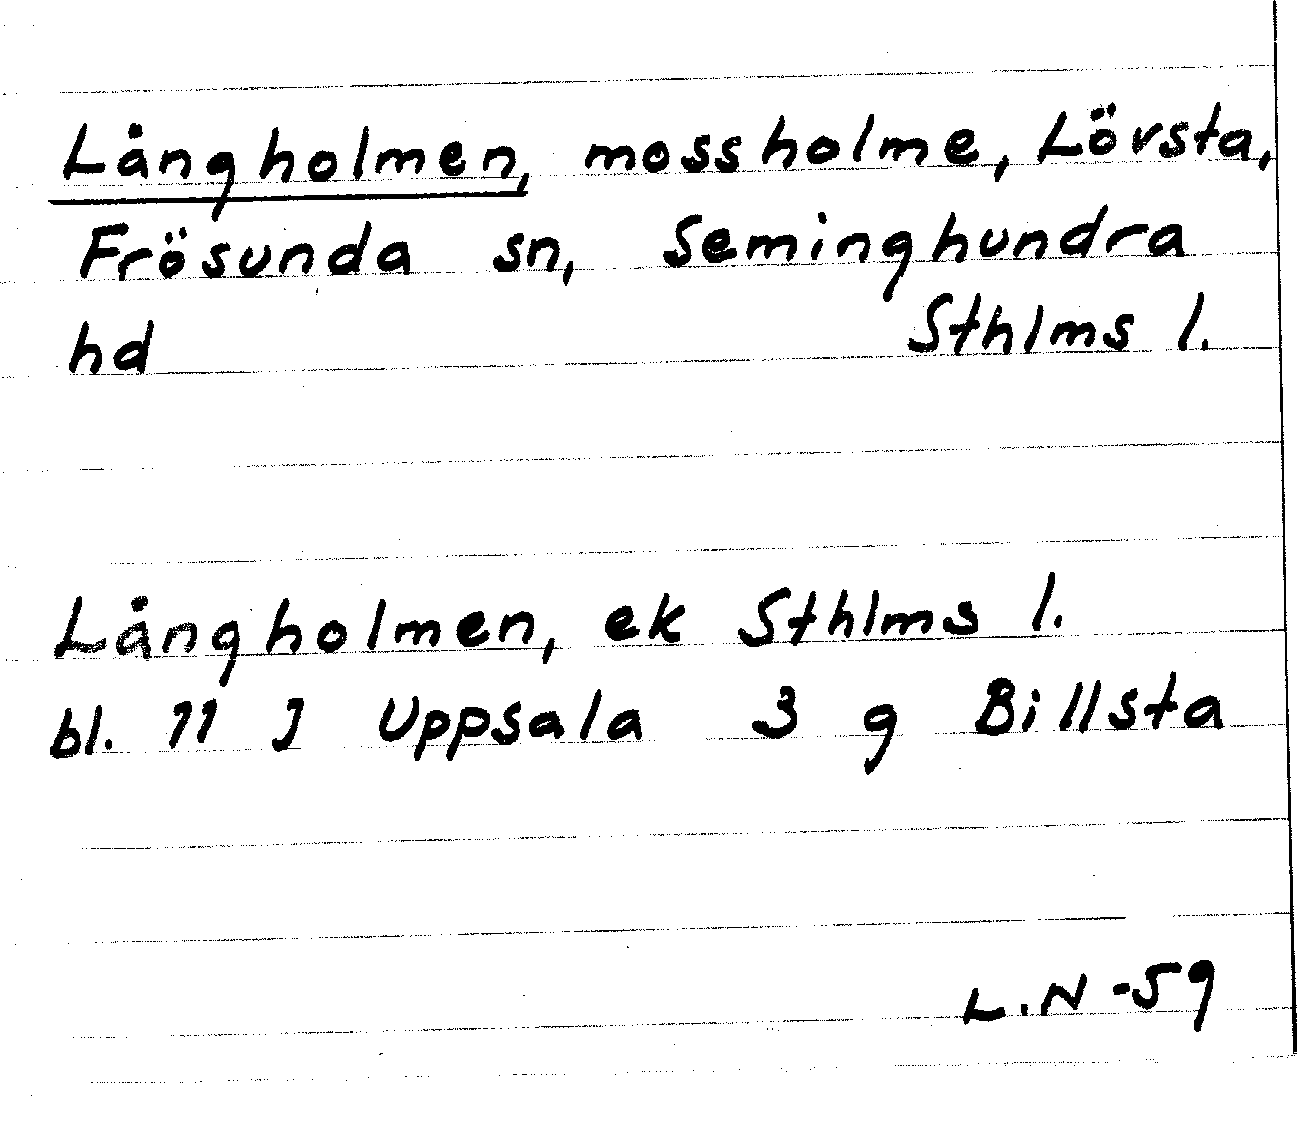 Långholmen, mossholme, Lövsta,
Frösunda sn, Seminghundra
hd Sthlms l.
Långholmen, ek Sthlms l.
bl. 11 J Uppsala 3 g Billsta
L.N -59